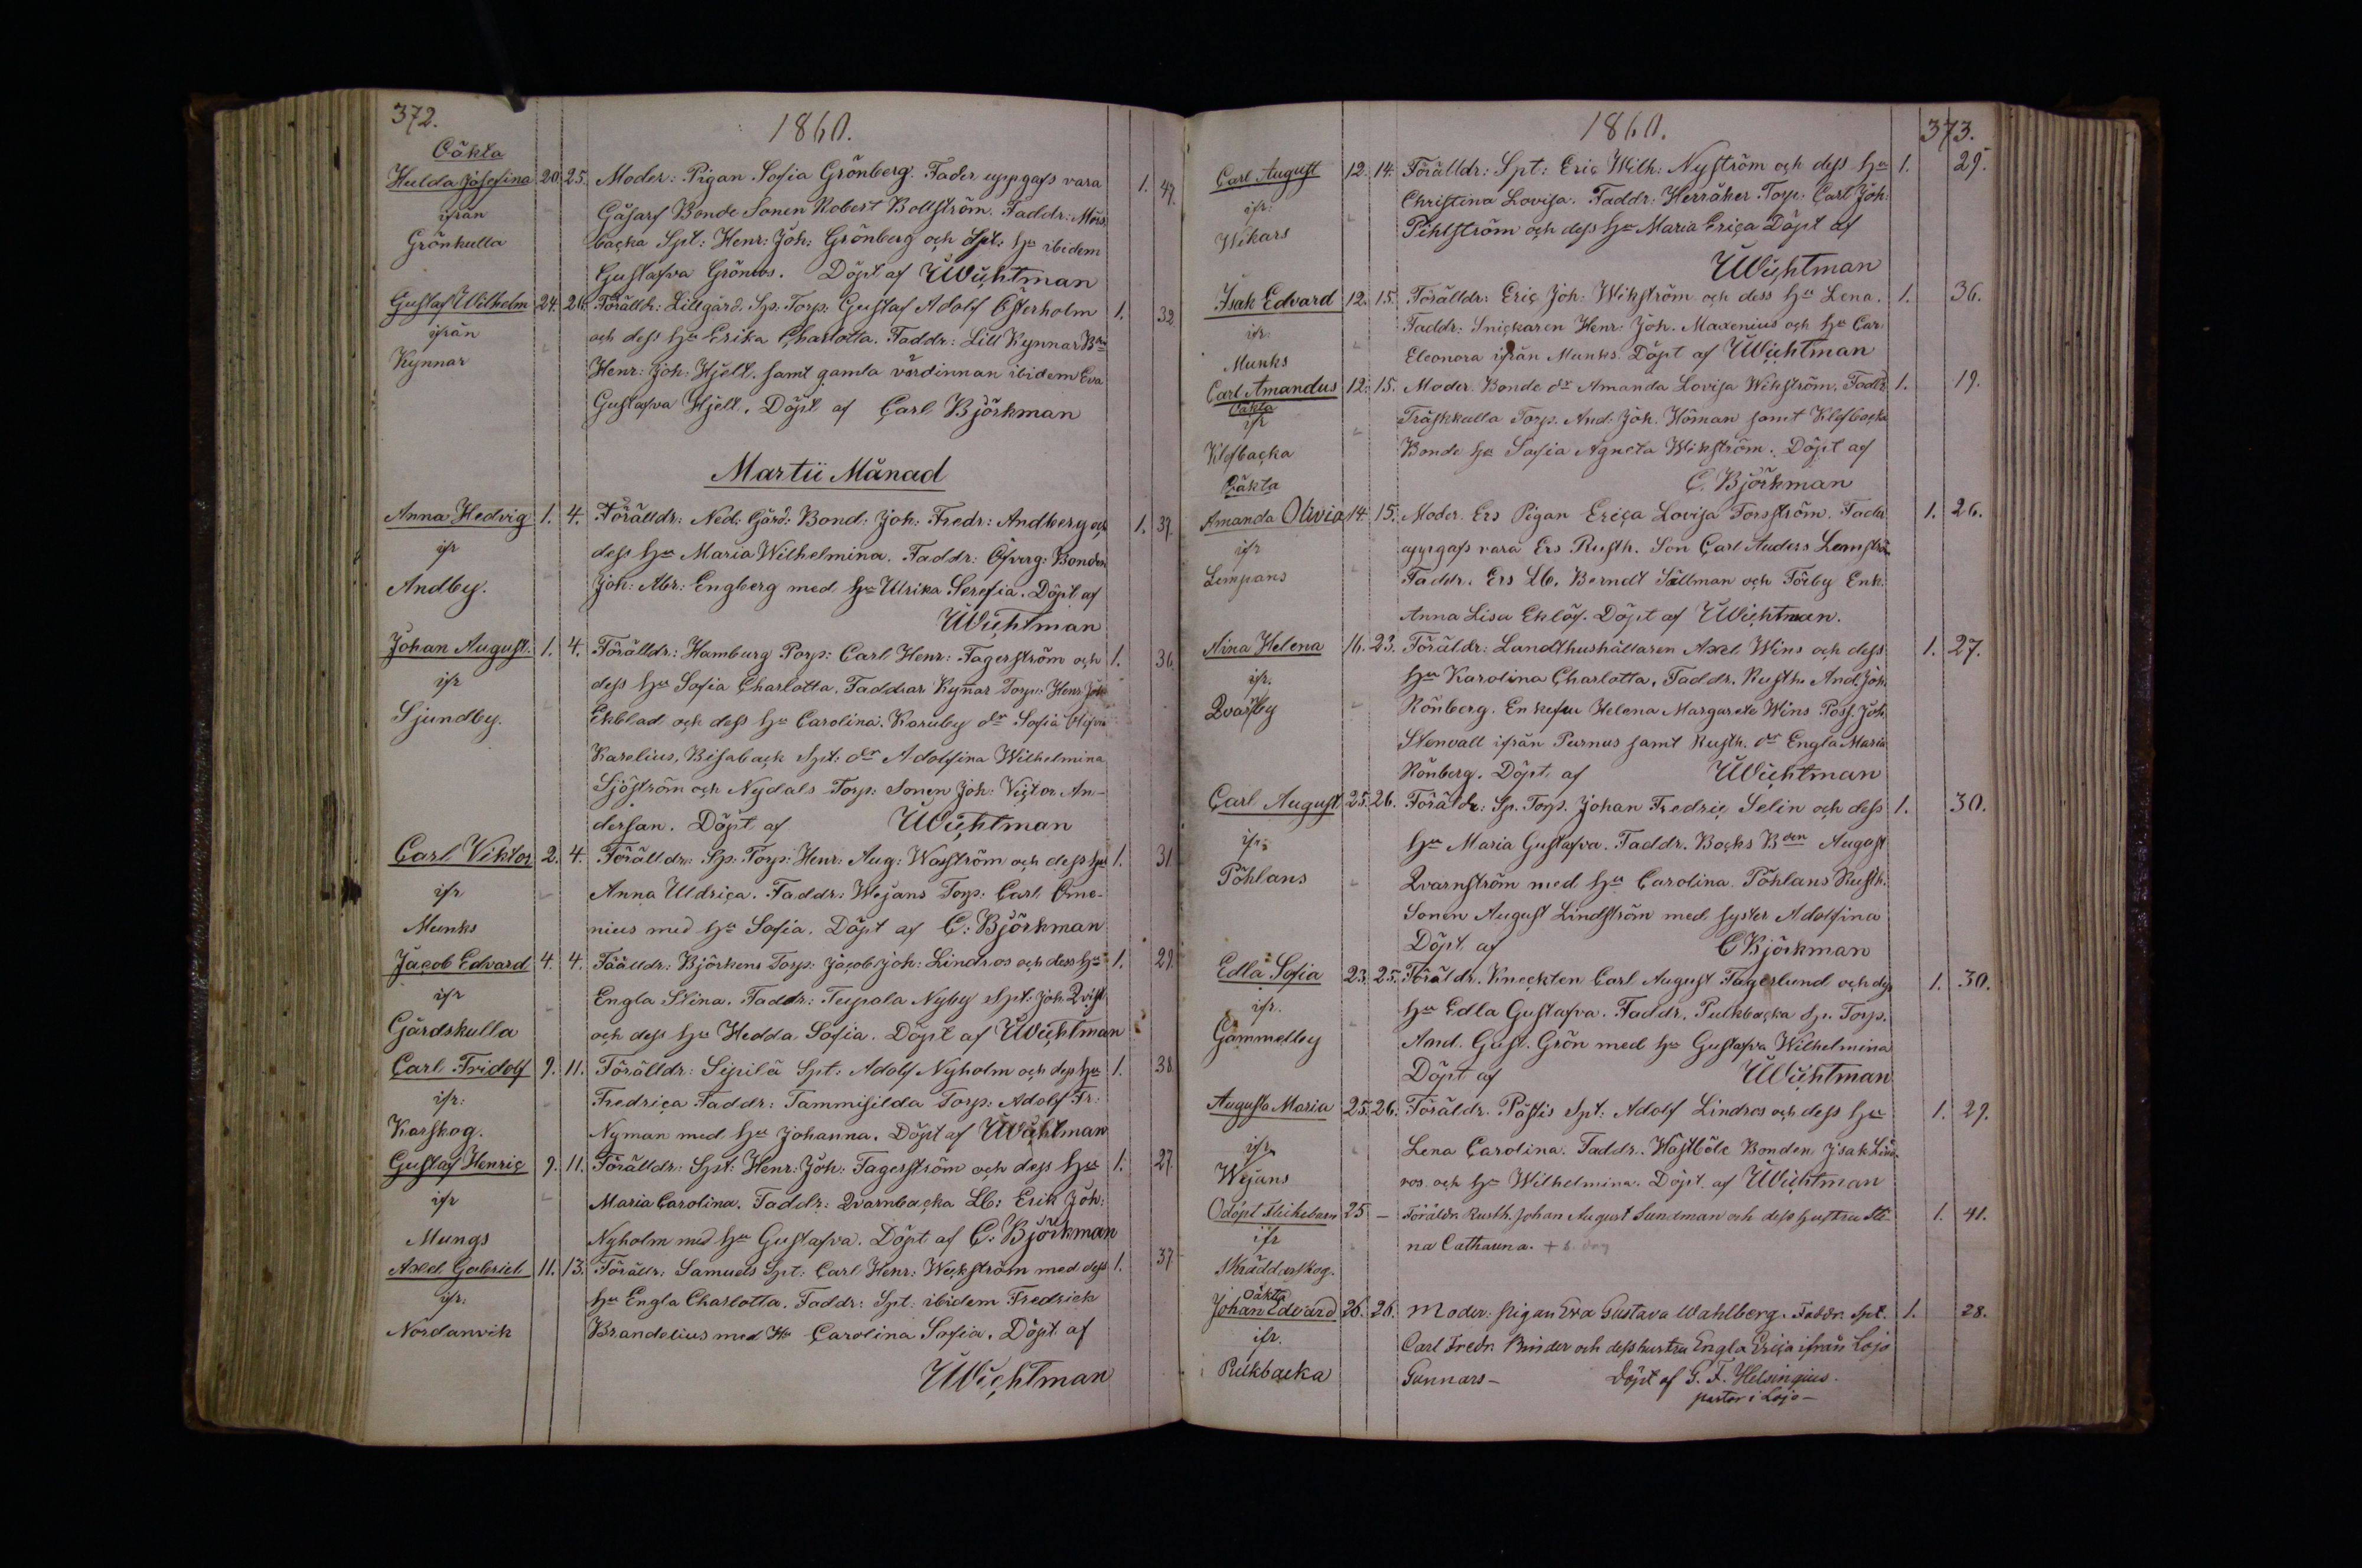 372.
1860.
Oäkta
Hulda Josefina 20. 25. Moder: Pigan Sofia Grönberg. Fader uppgafs vara 1. 47.
ifrån Gåsarf Bonde Sonen Robert Bollström. Faddr: Mörs
Grönkulla backa Spt: Henr: Joh: Grönberg och Spt: Hu ibidem
Gustafva Grönros. Döpt af UWichtman
Gustaf Wilhelm 24. 26. Förälldr: Lillgård. Sp: Torp: Gustaf Adolf Österholm 1. 32.
ifrån och dess Hu Erika Charlotta. Faddr: Lill Kynnar Bden
Kynnar Henr: Joh: Hjelt. samt gamla värdinnan ibidem Eva
Gustafva Hjelt. Döpt af Carl Björkman
Martii Månad
Anna Hedvig 1. 4. Förälldr: Ned: Gård: Bond: Joh: Fredr: Andberg och 1. 39.
ifr dess Hu Maria Wilhelmina. Faddr: Öfverg: Bonden
Andby. Joh: Abr: Engberg med Hu Ulrika Serefia. Döpt af
UWichtman
Johan August. 1. 4. Förälldr: Hamburg Torp: Carl Henr: Fagerström och 1. 36.
ifr dess Hu Sofia Charlotta. Faddrar Kynnar Torp: Henr Joh
Sjundby. Ekblad och dess Hu Carolina. Karuby dr Sofia
Karelius, Bisaback Spt: dr Adolfina Wilhelmina
Sjöström och Nydals Torp: Sonen Joh: Victor An-
dersan. Döpt af UWichtman
Carl Viktor 2. 4. Förälldr: Sp: Torp: Henr: Aug: Wasström och dess Hu 1. 31.
ifr Anna Uldrica. Faddr: Wejans Torp: Carl Öme-
Munks nius med Hu Sofia. Döpt af C: Björkman
Jacob Edvard 4. 4. Föälldr: Björkens Torp: Jacob Joh: Lindros och dess Hu 1. 29.
ifr Engla Stina. Faddr: Tupala Nyby Spt: Joh Qvist
Gårdskulla och dess Hu Hedda Sofia. Döpt af UWichtman
Carl Fridolf 9. 11. Förälldr: Sipilä Spt: Adolf Nyholm och dess Hu 1. 38.
ifr: Fredrica Faddr: Tammisilda Torp: Adolf Fr:
Karskog. Nyman med Hu Johanna. Döpt af UWichtman
Gustaf Henric 9. 11. Förälldr: Spt: Henr: Joh: Fagerström och dess Hu 1. 27.
ifr Maria Carolina. Faddr: Qvarnbacka Lb: Erik Joh:
Mungs Nyholm med Hu Gustafva. Döpt af C: Björkman
Axel Gabriel 11. 13. Föräldr: Samuels Spt: Carl Henr: Weckström med dess 1. 37
ifr: Hu Engla Charlotta. Faddr: Spt: ibidem Fredrick
Nordanvik Brandelius med Hu Carolina Sofia. Döpt af
UWichtman
1860. 373.
Carl August 12. 14. Förälldr: Spt: Eric Wilh: Nyström och dess Hu 1. 29.
ifr: Christina Lovisa. Faddr: Herråker Torp: Carl Joh:
Wikars Pihlström och dess Hu Maria Erica Döpt af
UWichtman
Isak Edvard 12. 15. Förälldr: Eric Joh: Wikström och dess Hu Lena. 1. 36.
ifr: Faddr: Snickaren Henr: Joh. Maxenius och Hu Car:
Munks Eleonora ifrån Munks. Döpt af UWichtman
Carl Amandus 12. 15. Moder. Bonde dr Amanda Lovisa Wikström. Faddr 1. 19.
Oäkta
ifr Träskkulla Torp. And. Joh. Höman samt Klefbacka
Klefbacka Bonde Hu Sofia Agneta Wikström. Döpt af
C. Björkman
Oäkta
Amanda Olivia 14. 15. Moder. Ers Pigan Erica Lovisa Forsström. Fader 1. 26.
ifr uppgafs vara Ers Rusth. Son Carl Anders Lemström
Lempans Faddr. Ers Lb. Berndt Sällman och Förby Enk:
Anna Lisa Eklöf. Döpt af UWichtman.
Aina Helena 16. 23. Föräldr: Landthushållaren Axel Wins och dess 1. 27.
ifr. Hu Karolina Charlotta. Faddr. Rusth. And. Joh.
Qvarby Rönberg. Enkefru Helena Margareta Wins Poss. Joh.
Stenvall ifrån Purnus samt Rusth. dr Engla Maria
Rönberg. Döpt af UWichtman
Carl August 25. 26. Föräldr: Sp. Torp. Johan Fredric Selin och dess 1. 30.
ifr. Hu Maria Gustafva. Faddr. Bocks Bden August
Pöhlans Qvarnström med Hu Carolina. Pöhlans Rusth.
Sonen August Lindström med syster Adolfina
Döpt af C Björkman
Edla Sofia 23. 25. Föräldr. Kneckten Carl August Fagerlund och dess 1. 30.
ifr. Hu Edla Gustafva. Faddr. Puckbacka Sp. Torp.
Gammelby And. Gust. Grön med Hu Gustafva Wilhelmina
Döpt af UWichtman
Augusta Maria 25. 26. Föräldr. Pästis Spt: Adolf Lindros och dess Hu 1. 29.
ifr. Lena Carolina. Faddr. Hästböle Bonden Isak Lind-
Wejans ros och Hu Wilhelmina. Döpt af UWichtman
Odöpt Flickebarn 25. — Föräldr. Rusth. Johan August Sundman och dess hustru Sti- 1. 41.
ifr na Catharina. + s. dag
Skräddarskog.
Oäkta
Johan Edvard 26. 26. Moder: pigan Eva Gustava Wahlberg. Faddr. Spt. 1. 28.
ifr. Carl Fredr. Binder och dess hustru Engla Erica ifrån Lojo
Pukbacka Gunnars — Döpt af G. F. Helsingius.
pastor i Lojo —